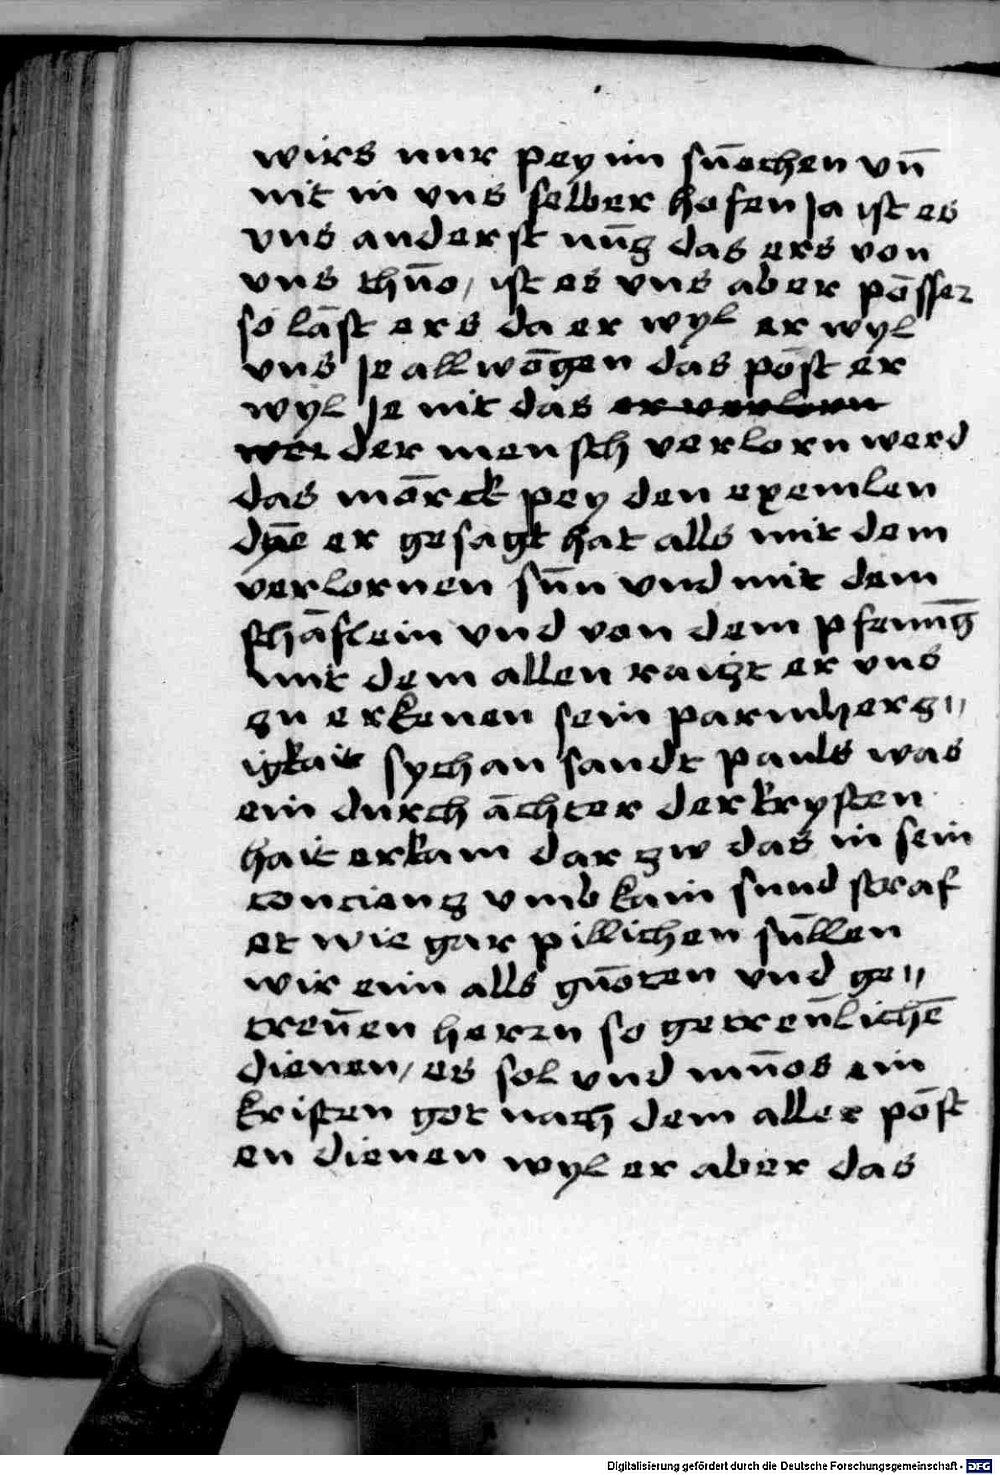 wirs nur pey im sūochen vn̄
nit in vns selber hofen ja ist es
vns anderst nūg das ers von
vns thūo, ist es vns aber pōsser
so lāst ers da er wyl er wyl
vns je allwōgen das pōst er
wyl je nit das er verlorn
wer der mensch verlorn werd
das mōrck pey den exemlen
dye er gesagt hat alls mit dem
verlornen sūn vnd mit dem
schāflein vnd von dem pfennīg
mit dem allen raiczt er vns
zu erkenen sein parmherz"
igkait sych an sandt pauls was
ein durch āchter der krysten
hait erkam dar zw das in sein
concienz vmb kain sund straf
et wie gar pillichen sūllen
wir eim alls gūoten vnd ge"
treūen herrn so getreūlichē
dienen, es sol vnd mūos ein
kristen got nach dem aller pōst
en dienen wyl er aber das
Digitalisierung gefördert durch die Deutsche Forschungsgemeinschaft - DFG